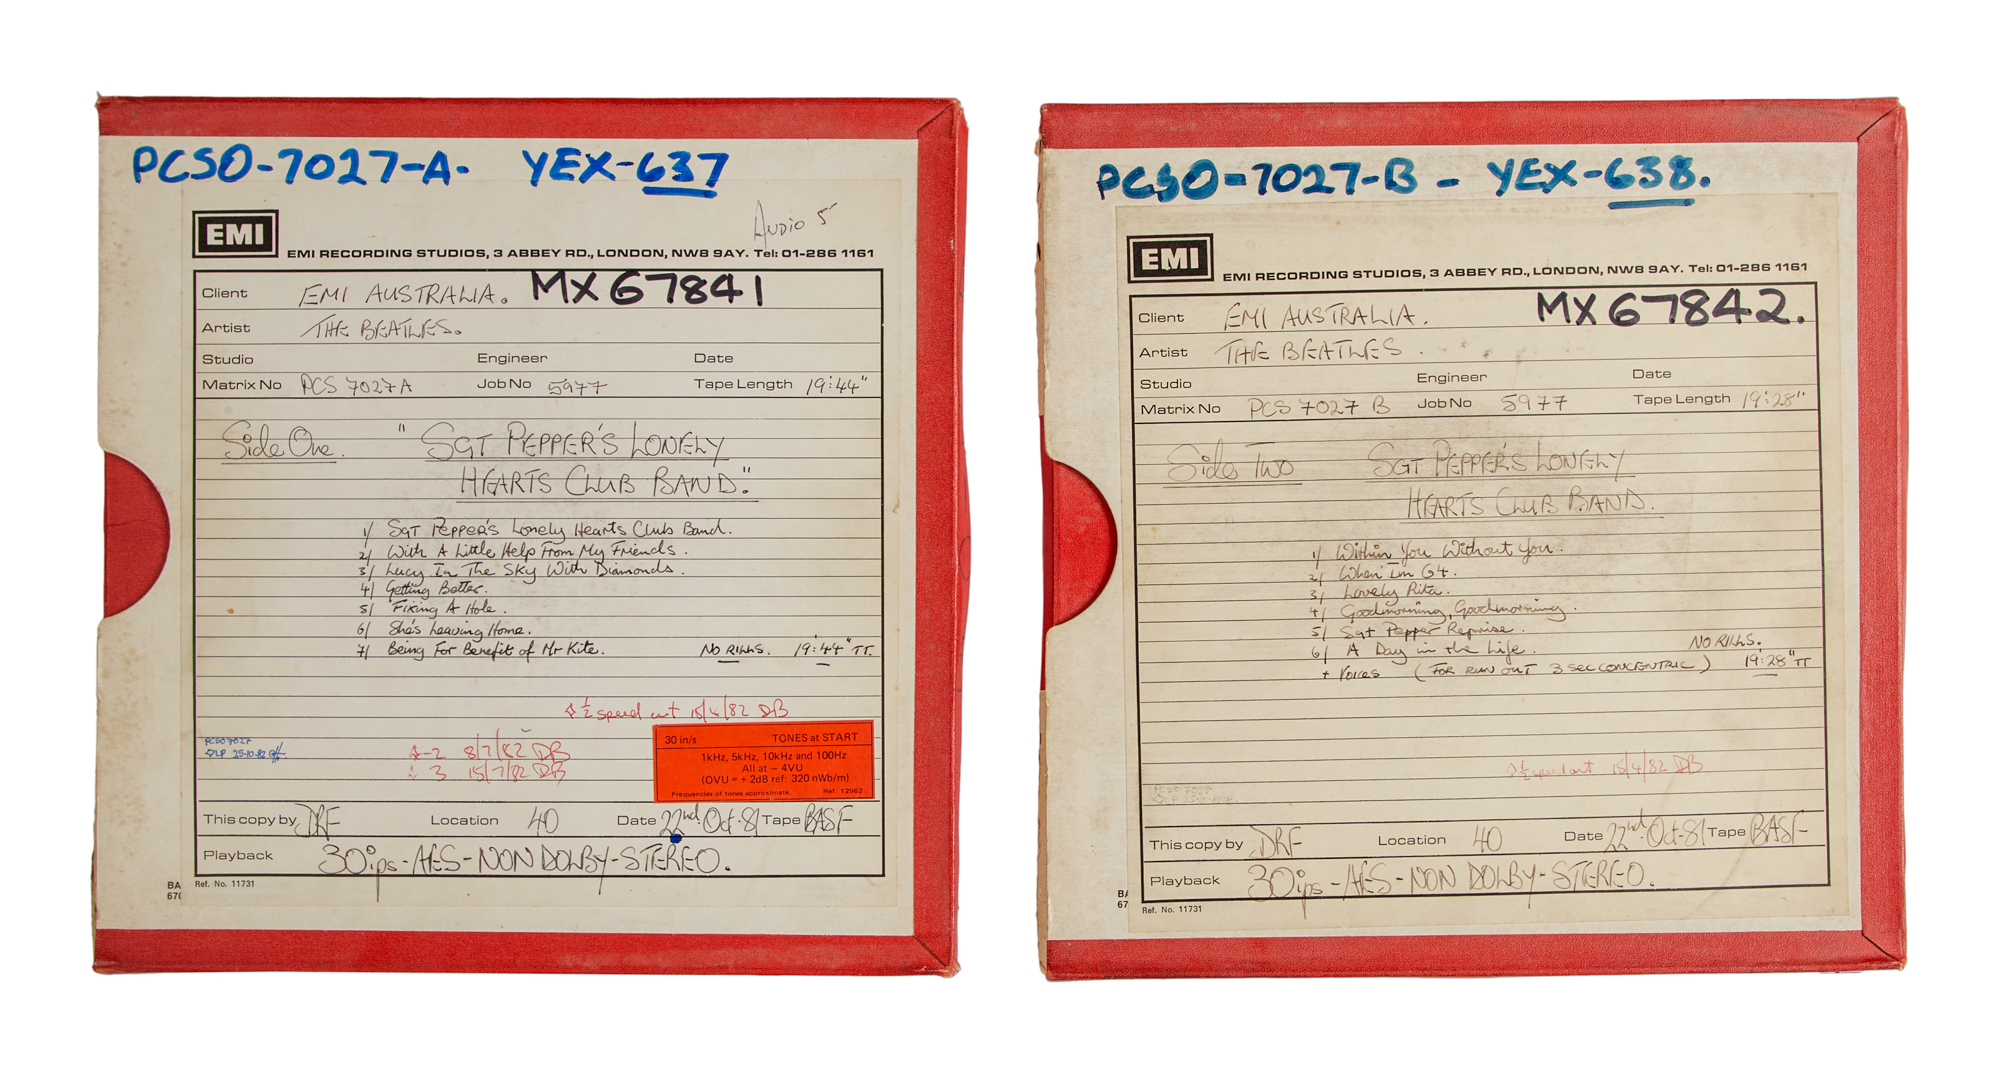 PCSO-7027-A- YEX-637
Audio 5
EMI
EMI RECORDING STUDIOS, 3 ABBEY RD., LONDON, NW8 9AY. Tel: 01-286 1161
Client EMI AUSTRALIA. MX 67841
Artist THE BEATLES.
Studio Engineer Date
Matrix No PCS 7027 A Job No 5977 Tape Length 19:44"
Side One. "SGT PEPPER'S LONELY
HEARTS CLUB BAND."
1/ SGT PEPPER'S Lonely Hearts Club Band.
2/ With A Little Help From My Friends.
3/ Lucy In The SKY With Diamonds.
4/ Getting Better.
5/ Fixing A Hole.
6/ She's Leaving Home.
7/ Being For Benefit of Mr Kite. NO RILLS. 19:44" TT.
½ speed cut 15/4/82 DB
PCSO 7027
LP 25-10-82
-2 8/7/82 DB
3 15/7/82 DB
30 in/s TONES at START
1kHz, 5kHz, 10kHz and 100Hz
All at – 4VU
(OVU = + 2dB ref: 320 nWb/m)
Frequencies of tones approximate. Ref: 12962
This copy by DRF Location 40 Date 22nd-Oct-81 Tape BASF
Playback 30ips-AES-NON DOLBY-STEREO.
Ref. No. 11731
BA
67
PCSO-7027-B - YEX-638.
EMI
EMI RECORDING STUDIOS, 3 ABBEY RD., LONDON, NW8 9AY. Tel: 01-286 1161
Client EMI AUSTRALIA. MX 67842.
Artist THE BEATLES.
Studio Engineer Date
Matrix No PCS 7027 B Job No 5977 Tape Length 19:28"
Side Two SGT PEPPER'S LONELY
HEARTS CLUB BAND.
1/ Within You Without You.
2/ When Im 64.
3/ Lovely Rita.
4/ Goodmorning, Goodmorning.
5/ Sgt Pepper Reprise.
6/ A Day in the Life. NO RILLS.
+ Voices (FOR RUN OUT 3 SEC CONCENTRIC) 19:28" TT
½ speed cut 15/4/82 DB
This copy by DRF Location 40 Date 22nd-Oct-81 Tape BASF
Playback 30ips-AES-NON DOLBY-STEREO.
Ref. No. 11731
BA
67